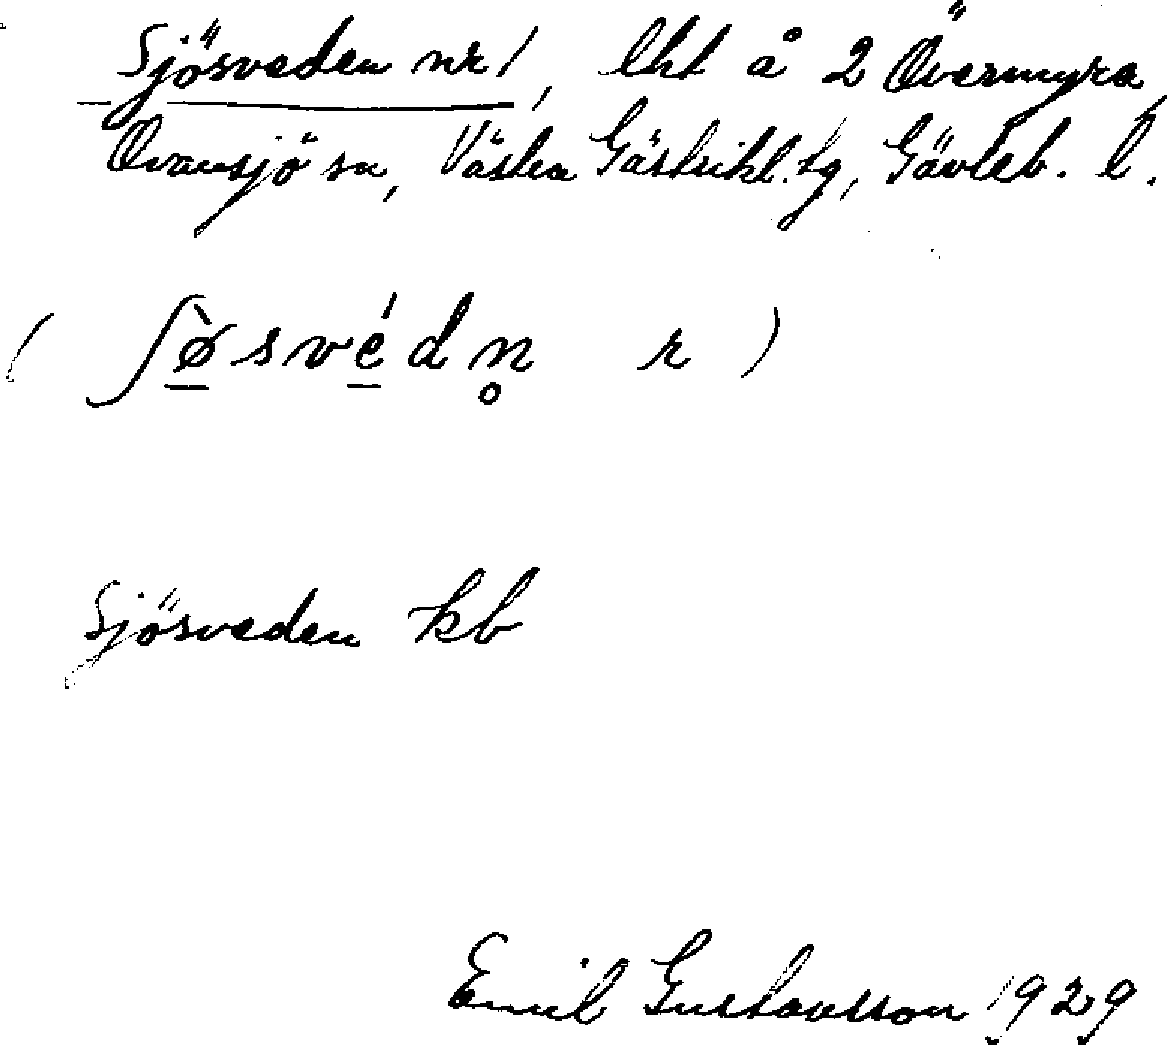 Sjösveden nr 1, lht å 2 Övermyra,
Ovansjö sn, Västra Gästrikl. tg, Gävleb. l.
( ʃø̠̀své̠dn̥ r )
Sjösveden kb
Emil Gustavsson 1929